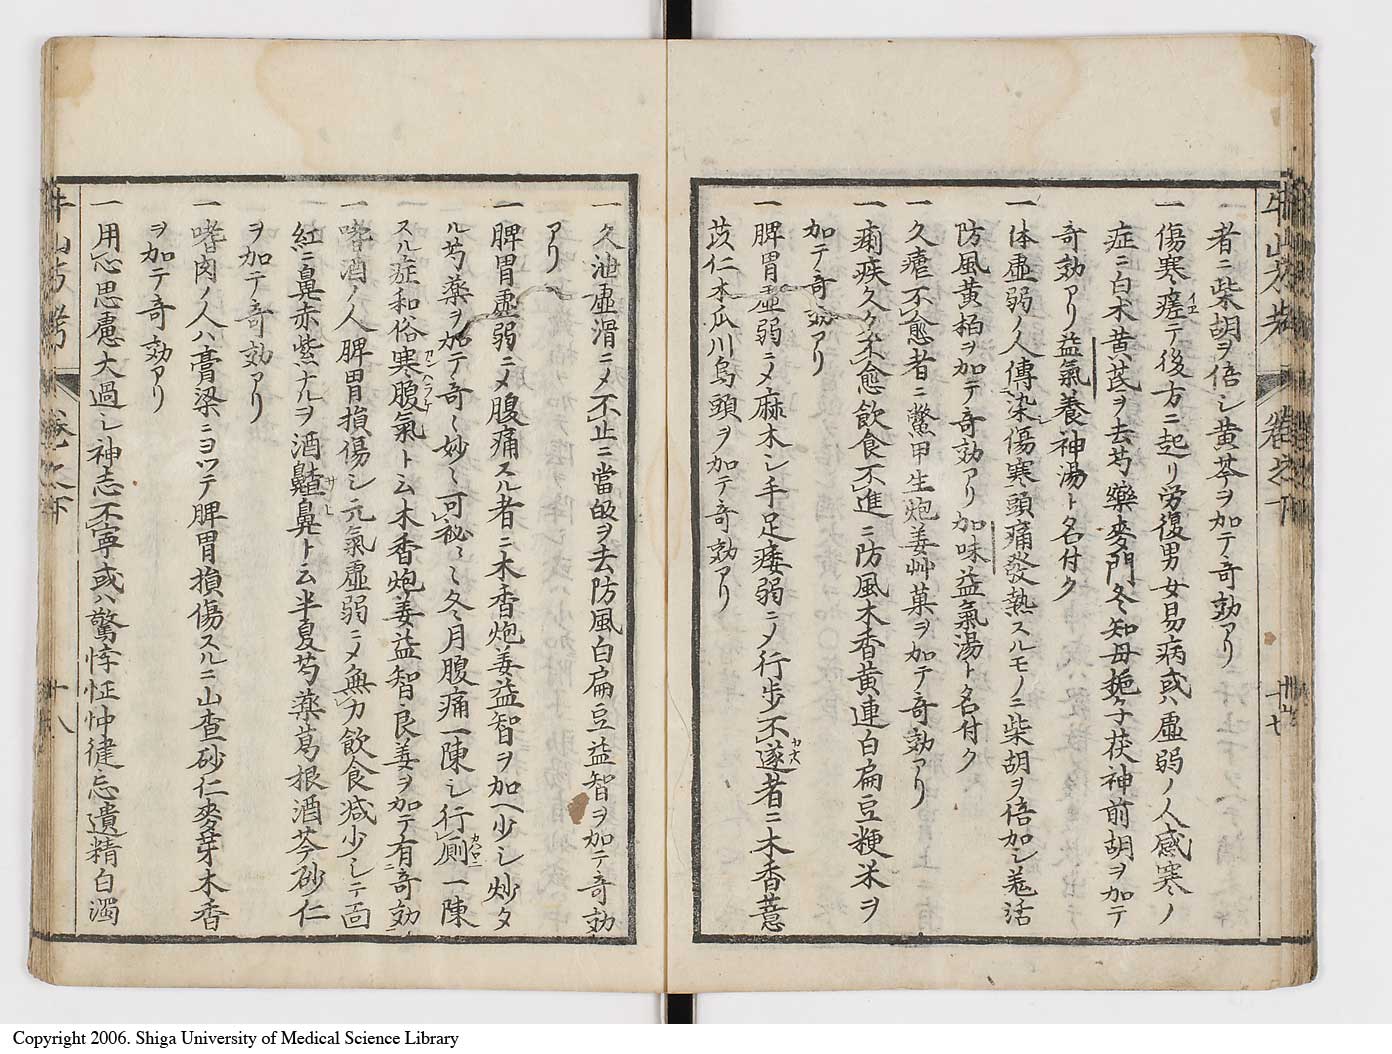 一者ニ柴胡ヲ倍シ黄芩ヲ加テ奇効アリ
一傷寒瘥テ後方ニ起リ労復男女易病或ハ虚弱ノ人感寒ノ
症ニ白木黄芪ヲ去芍藥麥門冬知母梔子茯神前胡ヲ加テ
奇効アリ益氣養神湯ト名付ク
一体虚弱ノ人傳染傷寒頭痛發熱スルモノニ柴胡ヲ倍加シ羗活
防風黄栢ヲ加テ奇効アリ加味益氣湯ト名付ク
一久瘧不愈者ニ鱉甲生炮姜艸菓ヲ加テ奇効アリ
一痢疾久ク不愈飲食不進ニ防風木香黄連白扁豆粳米ヲ
加テ奇効アリ
一脾胃虚弱ニメ麻木シ手足痿弱ニメ行歩不遂者ニ木香薏
苡仁木瓜川烏頭ヲ加テ奇効アリ
牛山方考 卷之下 十七
一久泄虚滑ニメ不止ニ當皈ヲ去防風白扁豆益智ヲ加テ奇効
アリ
一脾胃虚弱ニメ腹痛スル者ニ木香炮姜益智ヲ加ヘ少シ炒タ
ル芍藥ヲ加テ奇〻妙〻可秘〻〻冬月腹痛一陳シ行厠一陳
スル症和俗寒腹氣ト云木香炮姜益智良姜ヲ加テ有奇効
一嗜酒ノ人脾胃損傷シ元氣虚弱ニメ無力飲食減少シテ面
紅ニ鼻赤紫ナルヲ酒齇鼻ト云半夏芍藥葛根酒芩砂仁
ヲ加テ奇効アリ
一嗜肉ノ人ハ膏梁ニヨツテ脾胃損傷スルニ山査砂仁麥芽木香
ヲ加テ奇効アリ
一用心思慮大過シ神志不寧或ハ驚悸怔忡健忘遺精白濁
牛山方考 卷之下 十八
Copyright 2006. Shiga University of Medical Science Library